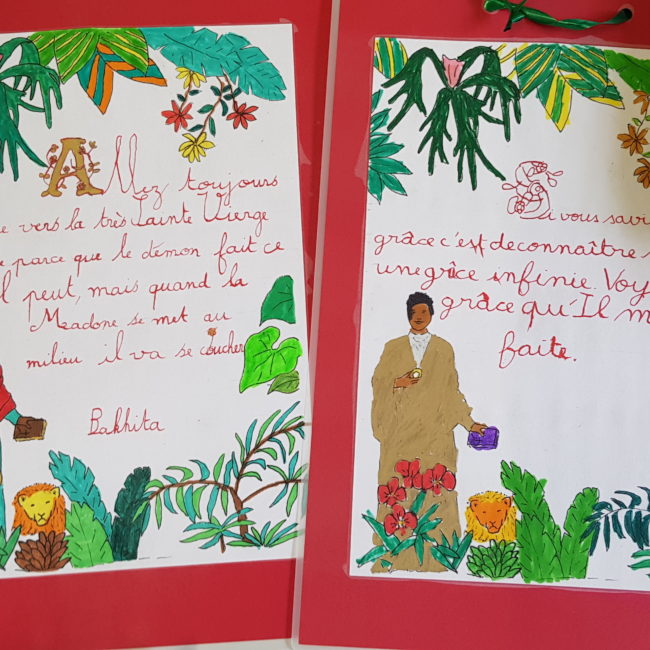 Allez toujours
vers la très Sainte Vierge
parce que le démon fait ce
peut, mais quand la
Meadone se met au
milieu il va se coucher
Bakhita
Si vous savi
grâce c'est deconnaître
une grâce infinie. Voy
grâce qu'Il m
faite.